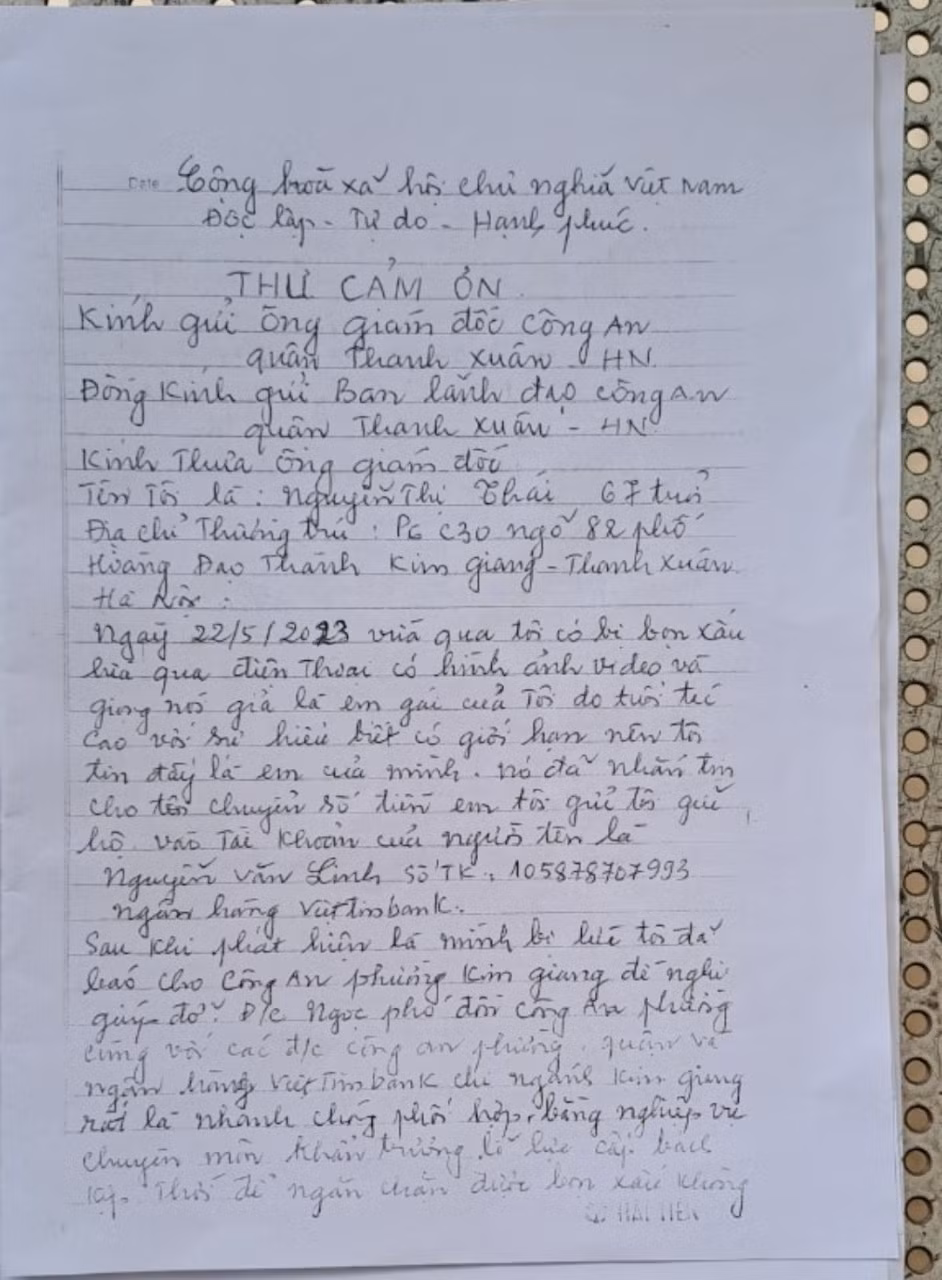 Date Cộng hoà xã hội chủ nghĩa Việt Nam
Độc lập - Tự do - Hạnh phúc.
THƯ CẢM ƠN
Kính gửi Ông giám đốc Công An
quận Thanh Xuân - HN
Đồng Kính gửi Ban lãnh đạo công An
quận Thanh Xuân - HN
Kính Thưa ông giám đốc
Tên Tôi là : Nguyễn Thị Thái 67 tuổi
Địa chỉ Thường trú : P6 C30 ngõ 82 phố
Hoàng Đạo Thành Kim giang - Thanh Xuân
Hà Nội :
Ngày 22/5/2023 vừa qua tôi có bị bọn xấu
lừa qua điện Thoại có hình ảnh video và
giọng nói giả là em gái của Tôi do tuổi tác
cao với sự hiểu biết có giới hạn nên tôi
tin đấy là em của mình. nó đã nhắn tin
cho tôi chuyển số tiền em tôi gửi tôi giữ
hộ vào Tài Khoản của người tên là
Nguyễn Văn Linh Số TK : 105878707993
ngân hàng VietTinbank.
Sau khi phát hiện là mình bị lừa tôi đã
báo cho Công An phường Kim giang đề nghị
giúp đỡ. Đ/c Ngọc phó đồn Công An phường
cùng với các đ/c công an phường, quận và
ngân hàng VietTinbank chi ngánh Kim giang
rất là nhanh chóng phối hợp, bằng nghiệp vụ
chuyên môn Khẩn trương cấp bách
kịp Thời để ngăn chặn được bọn xấu không
HẢI TIẾN